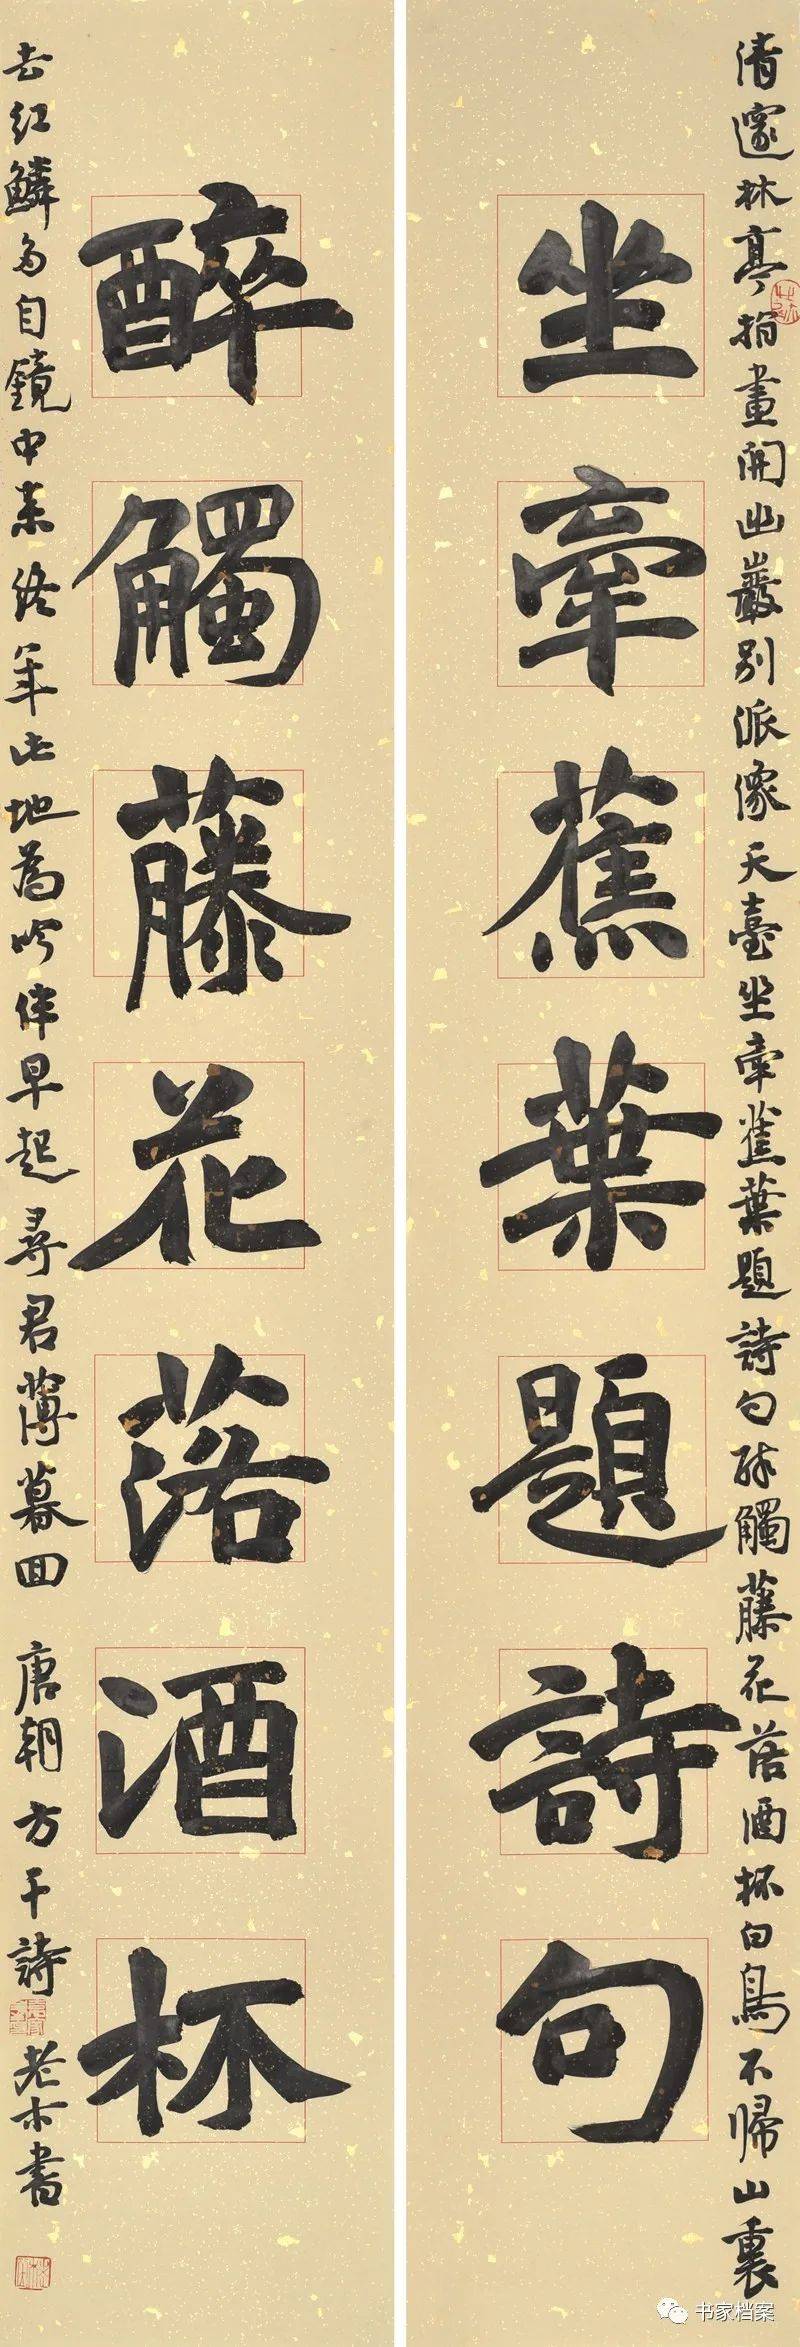 清邃林亭指畫開幽巖別派像天臺坐牽蕉葉題詩句醉觸藤花落酒杯白鳥不歸山裏
坐牽蕉葉題詩句
醉觸藤花落酒杯
去紅鱗多自鏡中來終年此地為吟伴早起尋君薄暮回 唐朝方干詩 老書
书家档案